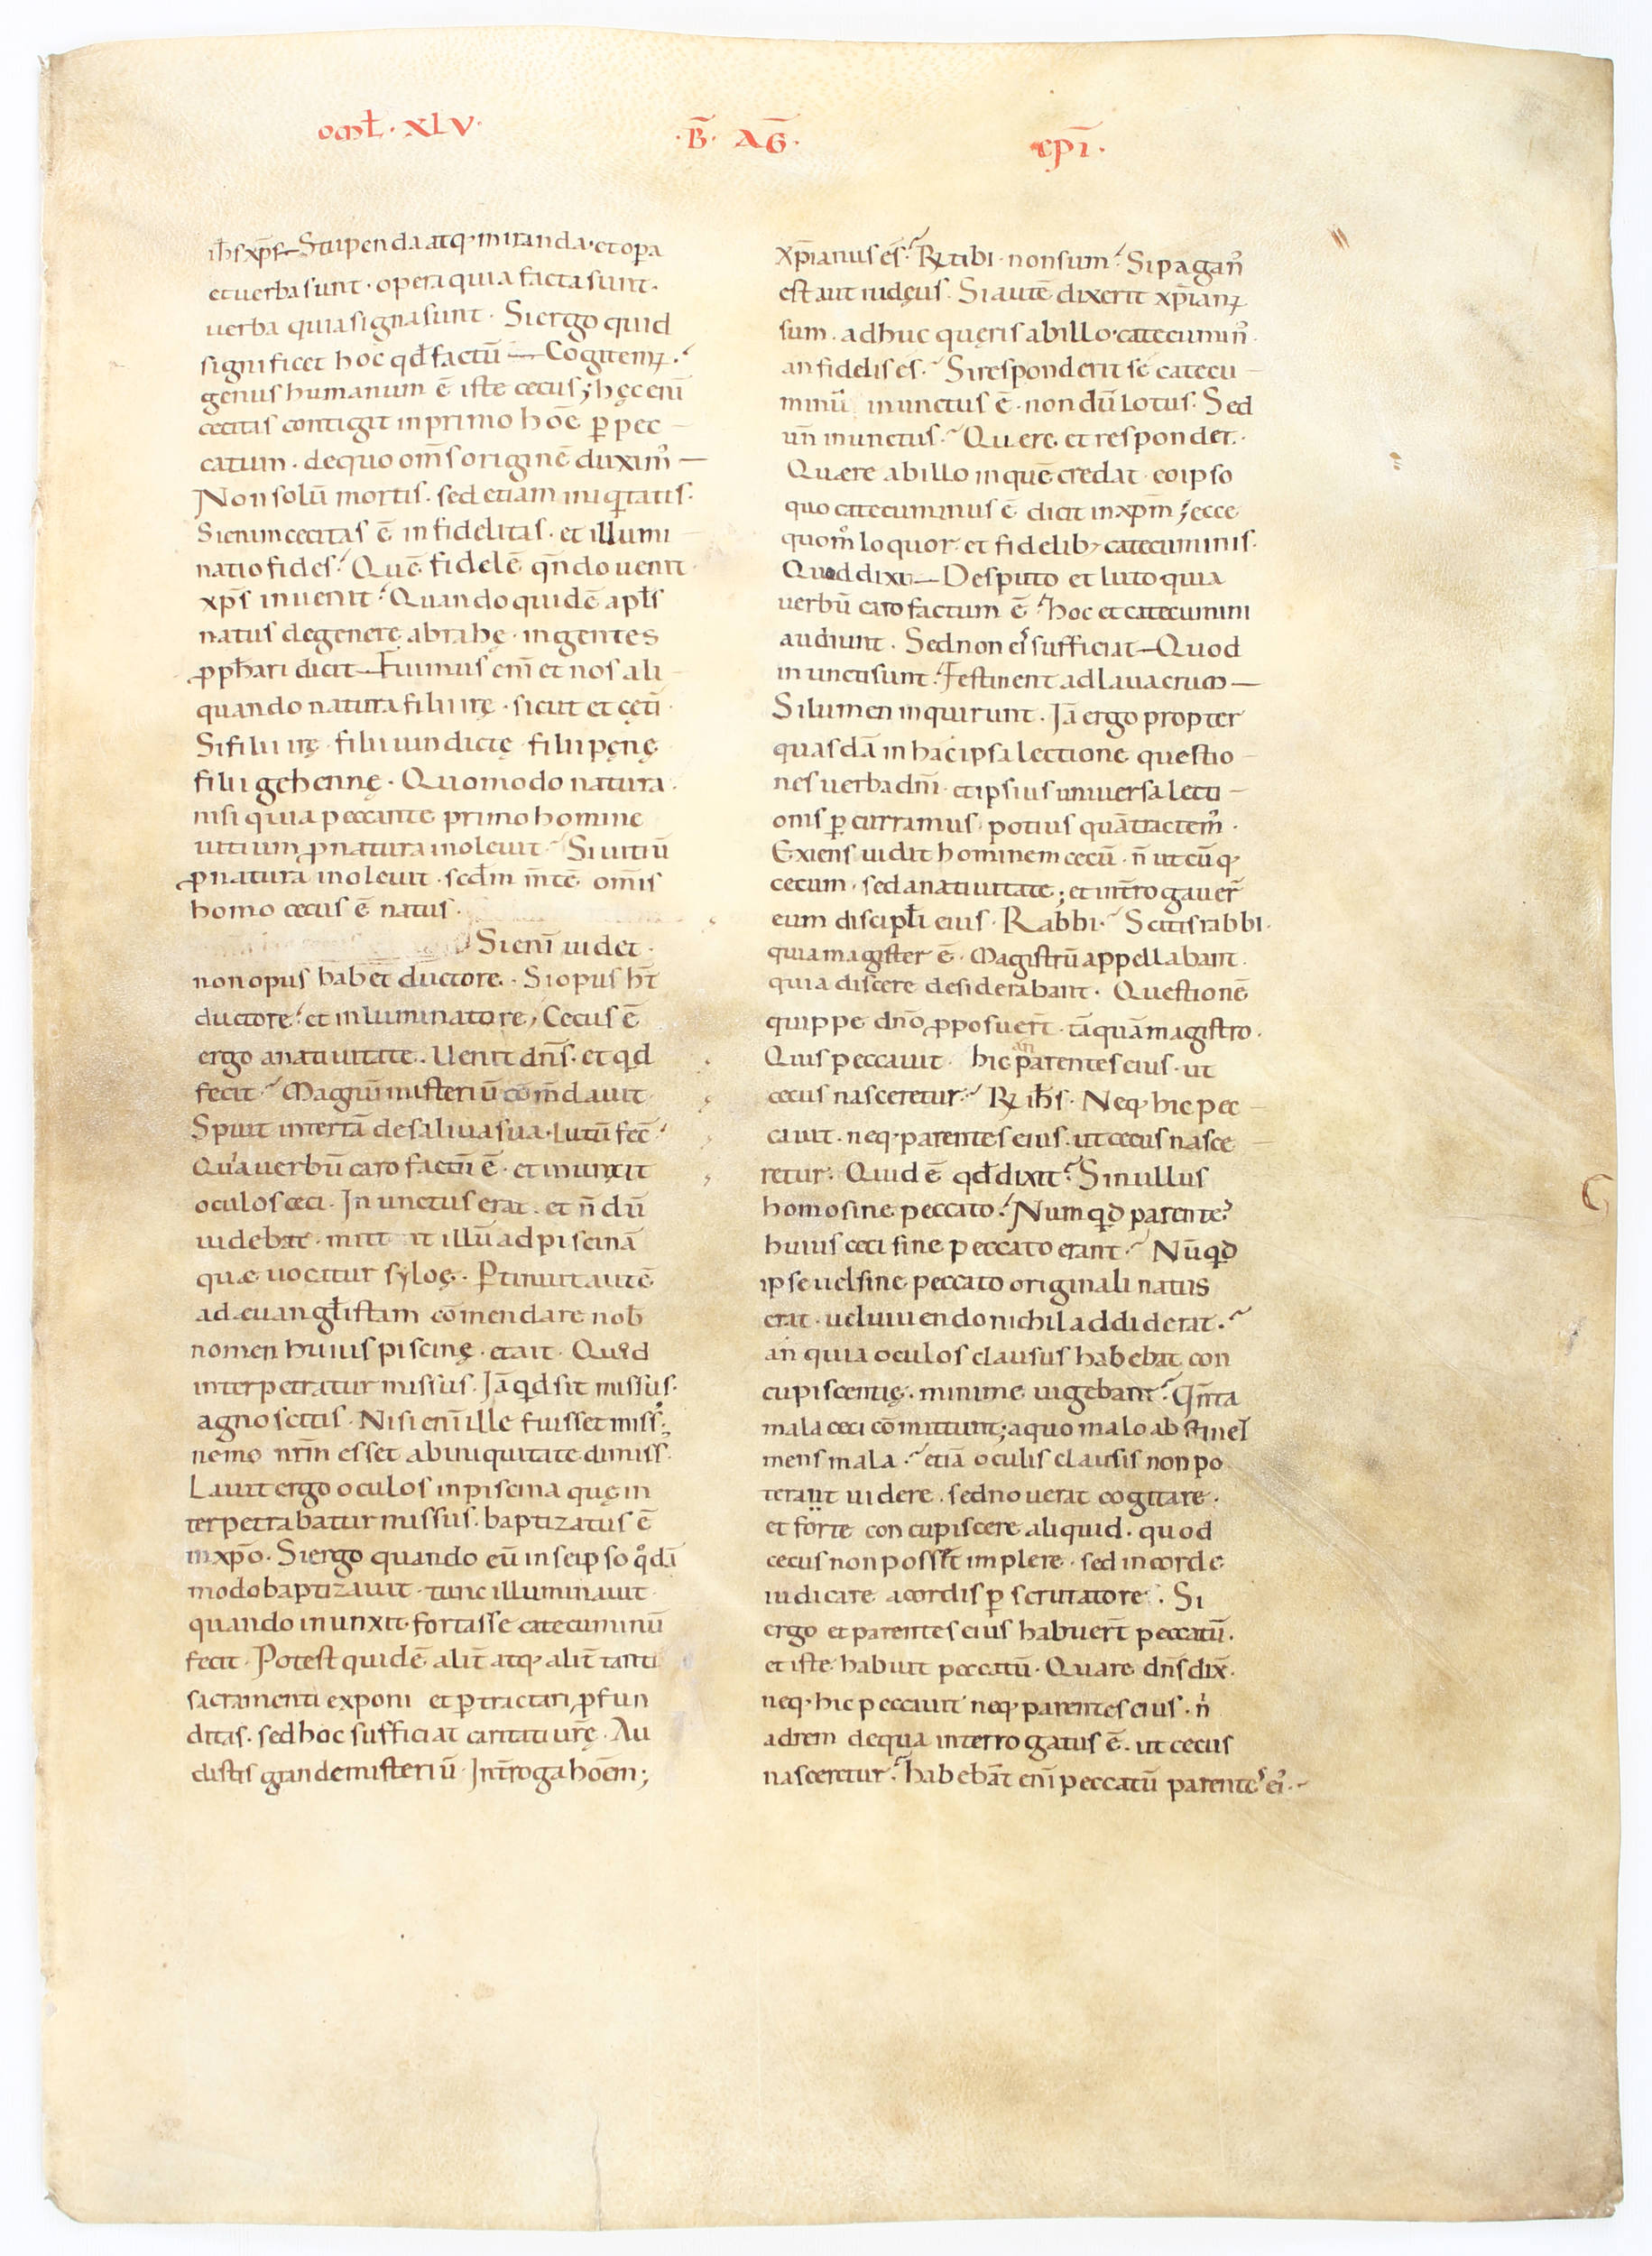 om̅ł · XLV ·
· B̅ · AG̅ ·
ep̅i ·
ih̅s xp̅s — Stupenda atq· miranda · et opa
et uerba sunt · opera quia facta sunt ·
uerba quia signa sunt · Si ergo quid
significet hoc qđ factū — Cogitem᷒ ·
genus humanum ē iste cecus; hęc enī
cecitas contigit in primo hoē ꝑ pec
catum · de quo om̅s originē duxim᷒ —
Non solū mortis · sed etiam iniq̇tatis ·
Si enim cecitas ē infidelitas · et illumi
natio fides · Quē fidelē qn̅do uenit ·
xp̅s inuenit · Quando quidē apłs
natus de genere abrahę · in gentes
ꝓpħari dicit — Fuimus eni̅ et nos ali
quando natura filii irę · sicut et cęti ·
Si filii irę · filii uindictę · filii pęnę
filii gehennę · Quomodo natura ·
nisi quia peccante primo homine
uitium ꝓ natura inoleuit · Si uitiū
ꝓ natura inoleuit · sedm̅ m̅tē om̅is
homo cecus ē natus ·
Si eni̅ uidet ·
non opus habet ductore · Si opus ht̅
ductore · et inluminatore, Cecus ē
ergo a natiuitate · Uenit dn̅s · et qd
fecit · Magnū misteriū com̅dauit ·
Spuit in terrā de saliua sua · Lutū fec̅ ·
Quia uerbū caro factū ē · et inunxit
oculos ceci · Inunctus erat · et n̅dū
uidebat · mitt it illū ad piscinā
quæ uocatur syloę · Ptinuit autē
ad euangłistam cōmendare nob̅
nomen huius piscinę · et ait · Quod
interpetratur missus · Iā qd sit missus ·
agnoscitis · Nisi enī ille fuisset miss᷒;
nemo nrm̅ esset ab iniquitate dimiss ·
Lauit ergo oculos in piscina quę in
terpetrabatur missus · baptizatus ē
in xp̅o · Si ergo quando eū in seipso qͦdā
modo baptizauit · tunc illuminauit
quando inunxit · fortasse catecuminū
fecit · Potest quidē alit̅ atq· alit̅ tanti
sacramenti exponi et ꝑtractari ꝓfun
ditas · sed hoc sufficiat caritati urę̅ · Au
distis grande misteriū · Int̅roga hoēm;
xp̅ianus es · R̷ tibi · non sum · Si pagan᷒
est aut iudęus · Si autē dixerit xp̅ian᷒
sum · adhuc quęris ab illo · catecumin᷒ ·
an fidelis es · Si responderit se catecu
minū inunctus ē · nondū Lotus · Sed
un̅ inunctus · Quere et respondet ·
Quære ab illo in quē credat · eo ipso
quo catecuminus ē dicit in xp̅m; ecce
quom̊ loquor et fidelib· catecuminis ·
Quod dixi — De sputo et luto quia
uerbū caro factum ē · hoc et catecumini
audiunt · Sed non eis sufficiat — Quod
inuncti sunt · Festinent ad lauacrum —
Si lumen inquirunt · Iā ergo propter
quasdā in hac ipsa lectione questio
nes uerba dn̅i · et ipsius uniuersa lecti
onis ꝑcurramus potius quā tractem᷒ ·
Exiens uidit hominem cecū · n̅ utcūq·
cecum · sed a natiuitate; et int̅rogauer̅
eum discipłi eius · Rabbi · Scitis rabbi ·
quia magister ē · Magistrū appellabant ·
quia discere desiderabant · Questionē
quippe dn̅o ꝓposuert̅ · tāquā magistro ·
Quis peccauit · hic an parentes eius · ut
cecus nasceretur · R̷ ih̅s · Neq· hic pec
cauit · neq· parentes eius · ut cecus nasce
retur · Quid ē qđ dixit · Si nullus
homo sine peccato · Numqd parente᷒
huius ceci sine peccato erant · Nūqd
ipse uel sine peccato originali natus
erat · uel uiuendo nichil addiderat ·
an quia oculos clausus habebat con
cupiscentię · minime uigebant · Q̅nta
mala ceci cōmittunt; a quo malo abstinet
mens mala · etiā oculis clausis non po
terant uidere · sed nouerat cogitare ·
et forte concupiscere aliquid · quod
cecus non posset implere · sed in corde
iudicare a cordis ꝑscrutatore · Si
ergo et parentes eius habuert̅ peccatū ·
et iste habuit peccatū · Quare dn̅s dix̅ ·
neq· hic peccauit neq· parentes eius · n̅
ad rem de qua interrogatus ē · ut cecus
nasceretur · habebāt eni̅ peccatū parentes ei᷒ ·